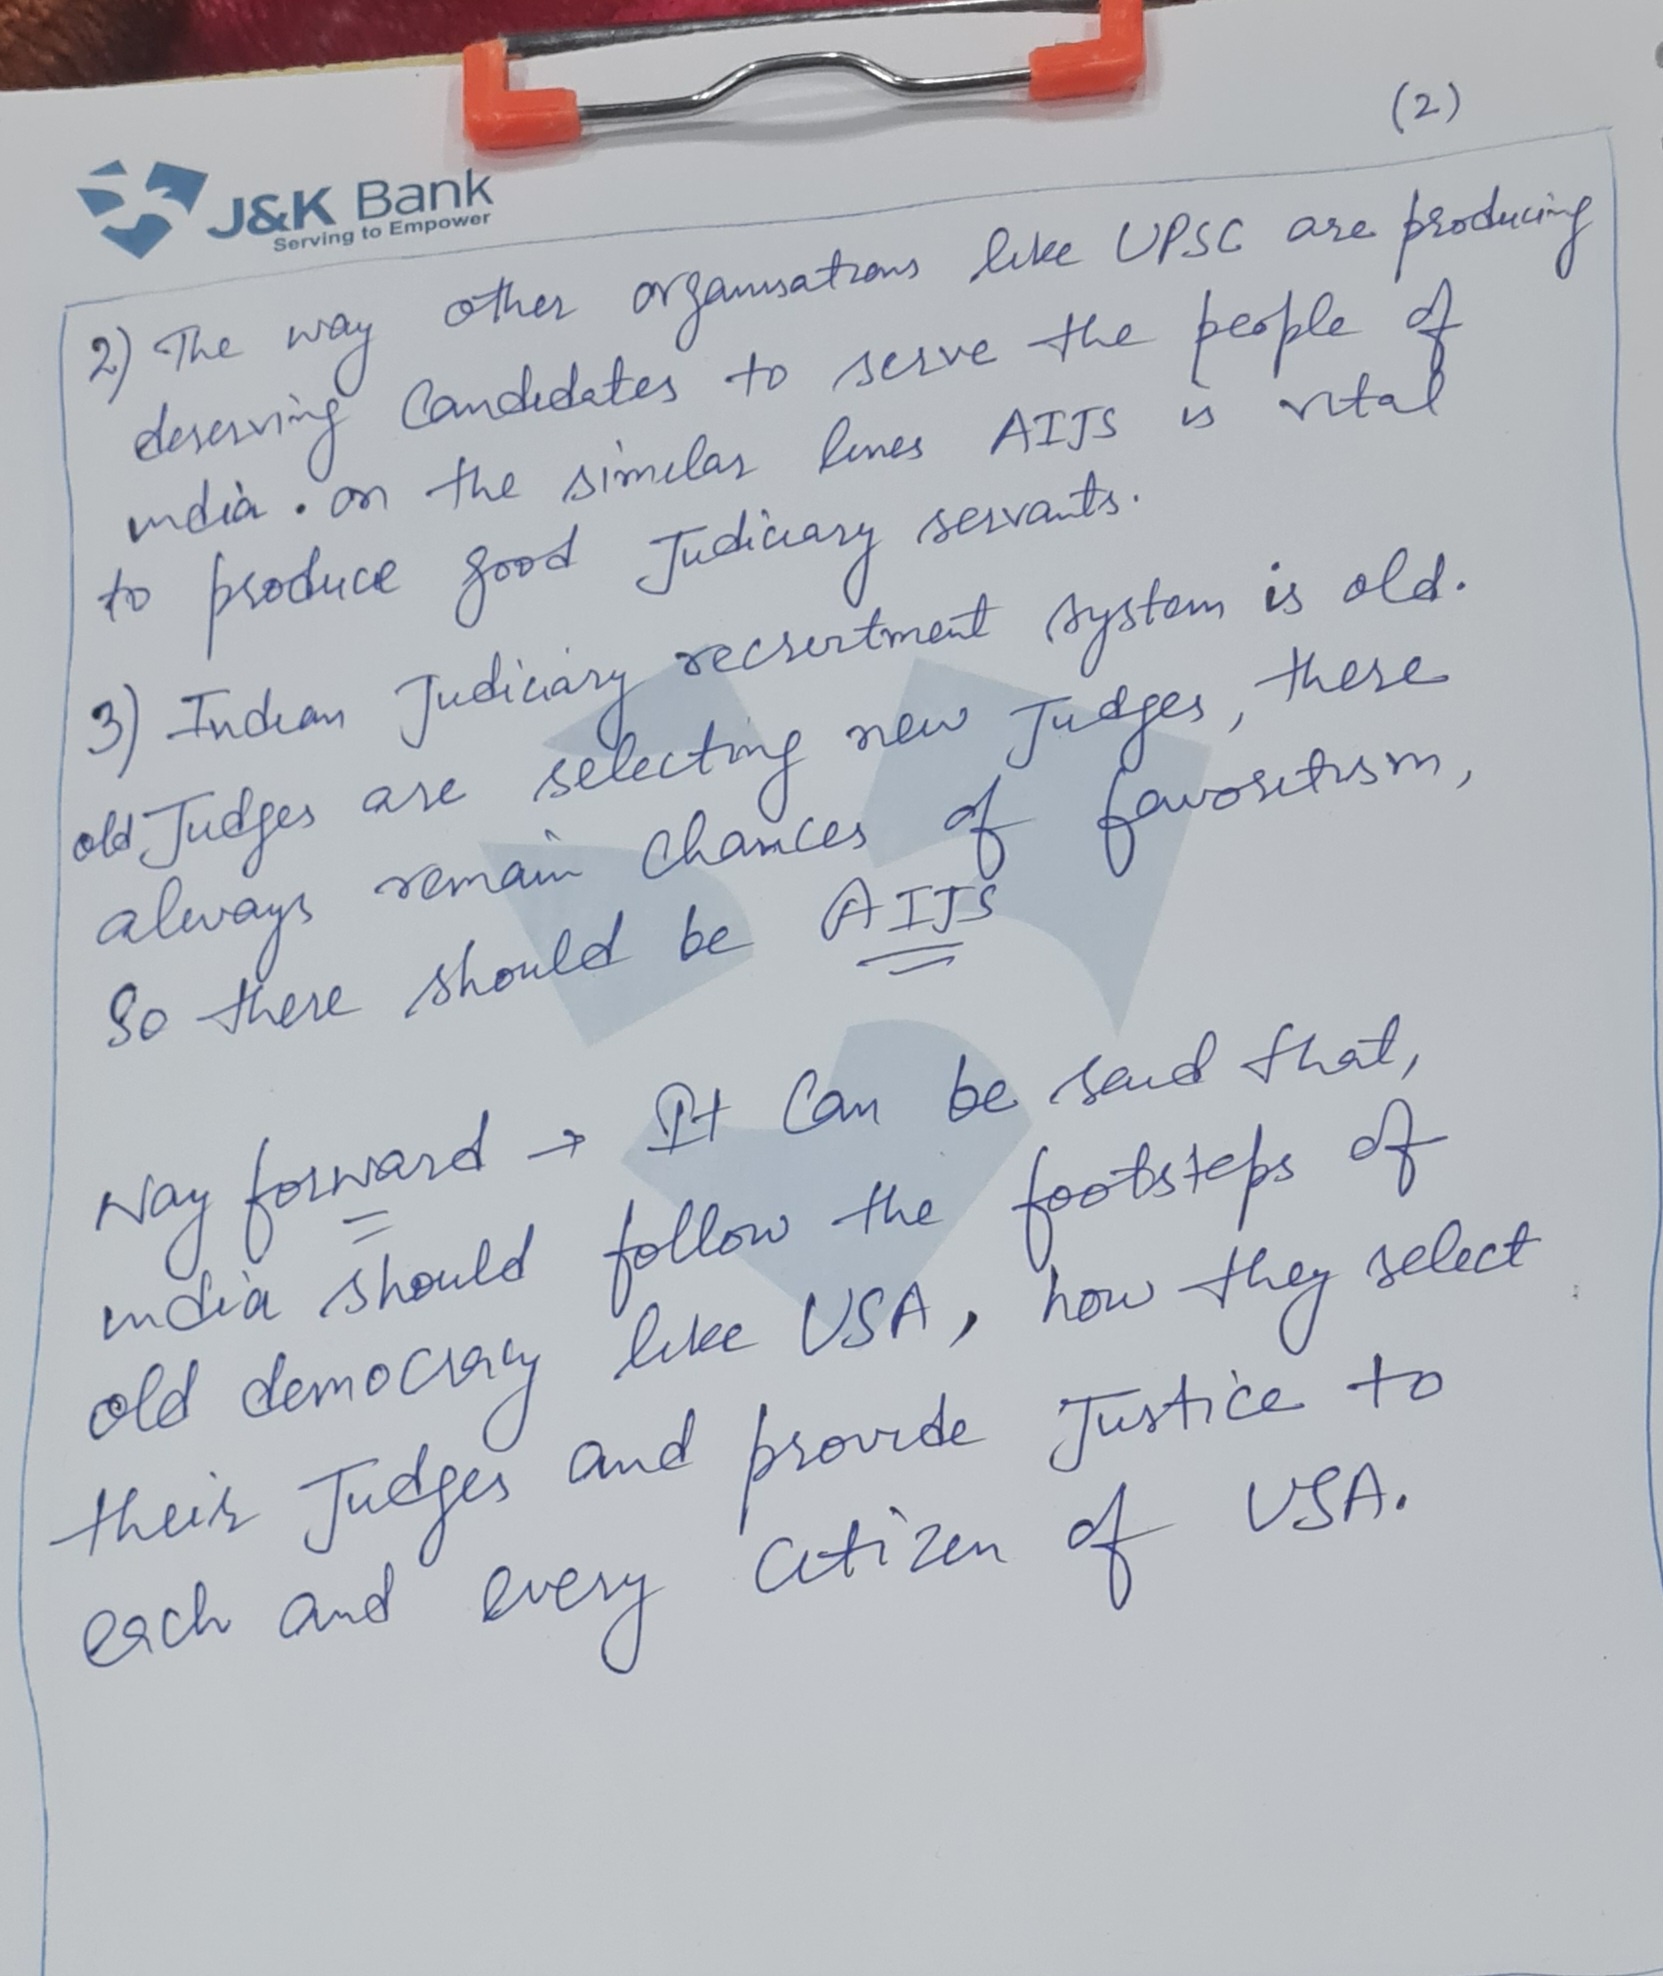 (2)
J&K Bank
Serving to Empower
2) The way other organisations like UPSC are producing
deserving Candidates to serve the people of
india. on the similar lines AIJS is vital
to produce good Judiciary servants.
3) Indian Judiciary recruitment system is old.
old Judges are selecting new Judges, there
always remain chances of favoritism,
So there should be AIJS
Way forward → It Can be said that,
india should follow the footsteps of
old democracy like USA, how they select
their Judges and provide Justice to
each and every Citizen of USA.